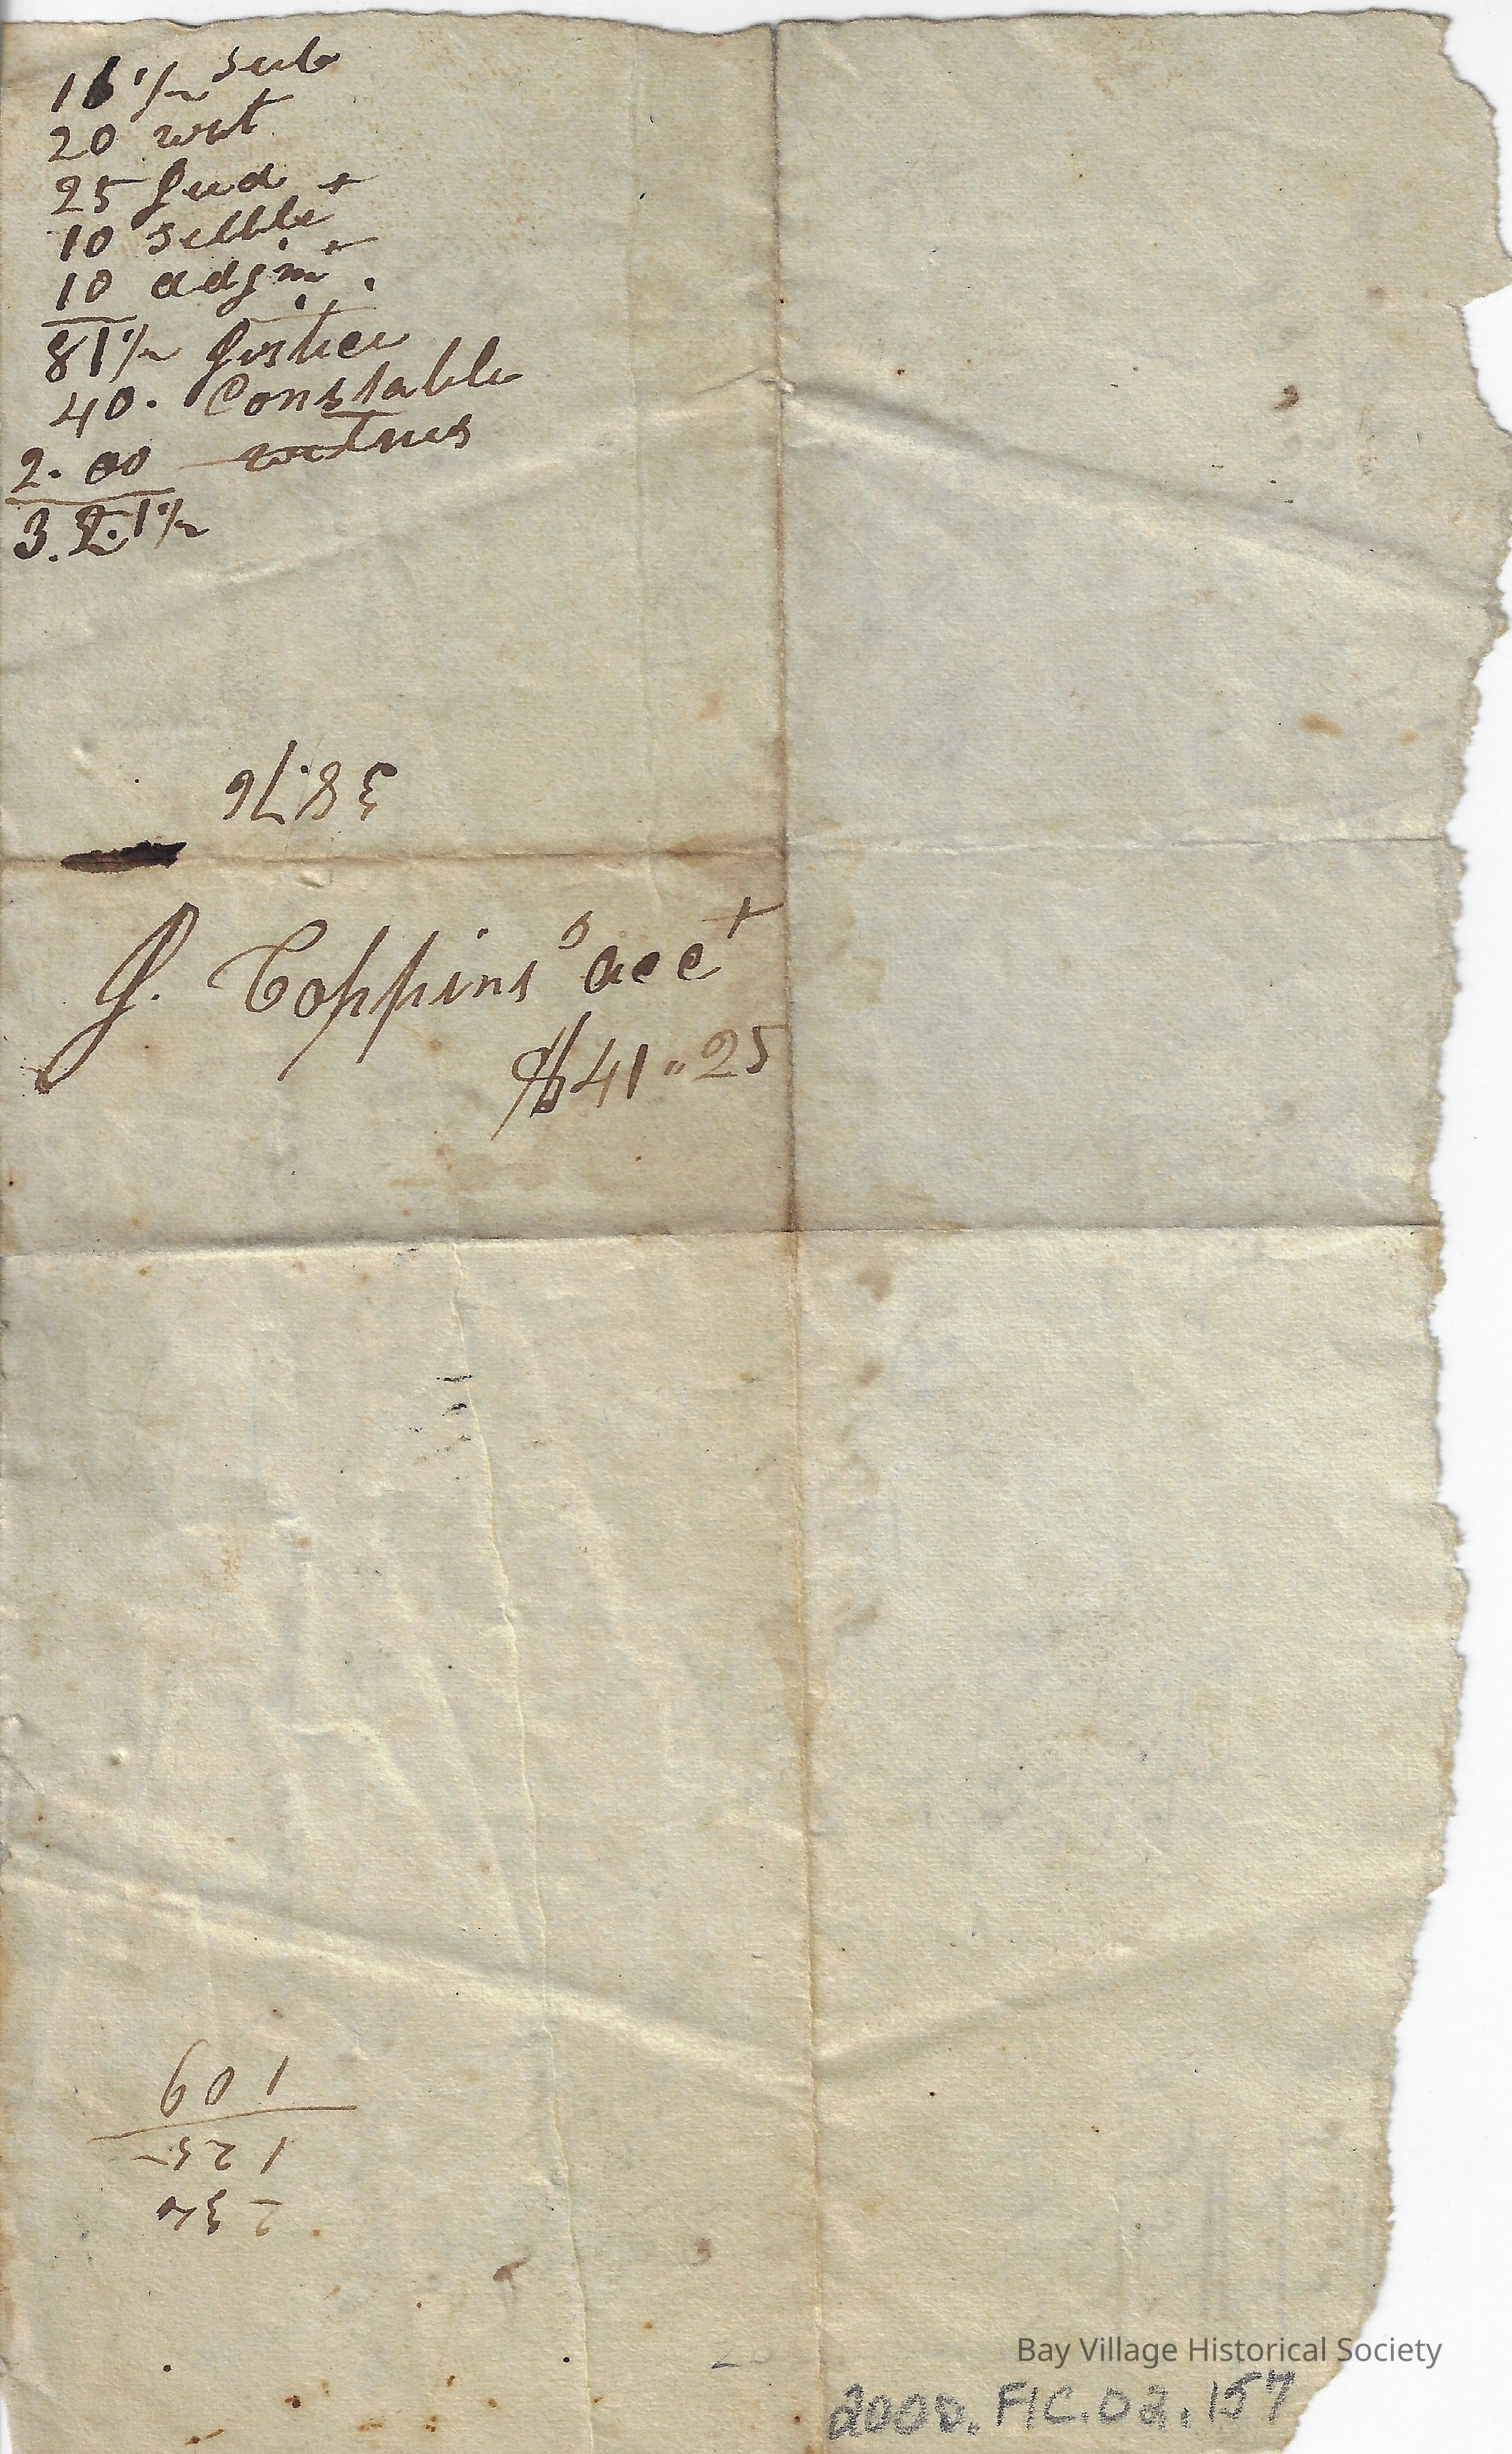 16 1/2 sub
20 writ
25 Jud t
10 settle
10 adjmt.
81 1/2 Justice
40. Constable
2.00 witnes
3.21 1/2
38.76
J. Coppins's acct
$41"25
234
125
109
Bay Village Historical Society
2000.FIC.02.157